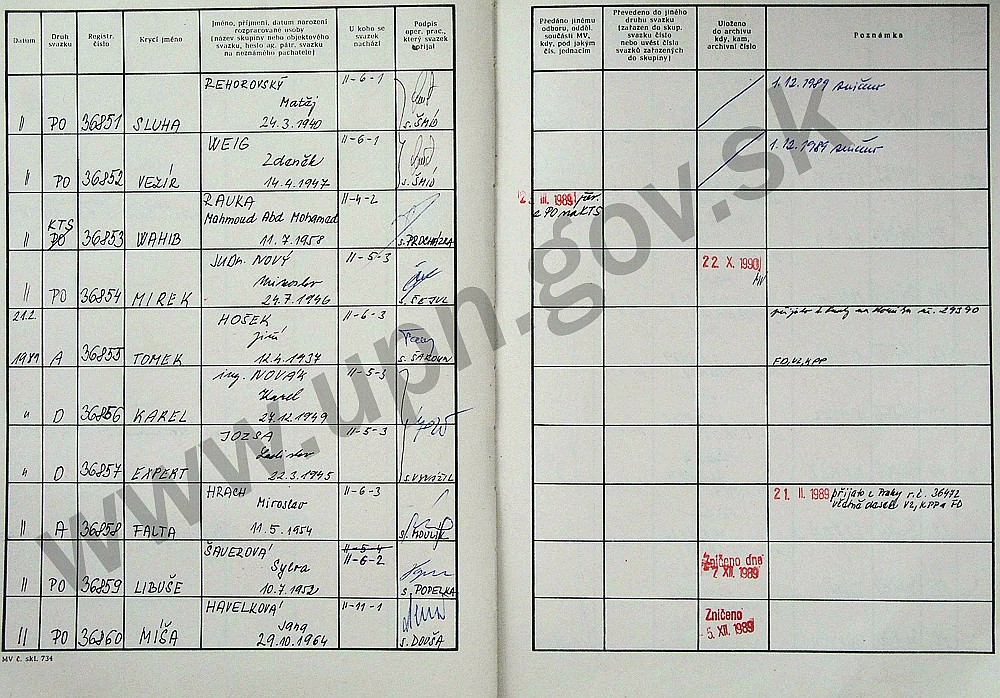 Datum
Druh svazku
Registr. číslo
Krycí jméno
Jméno, příjmení, datum narození
rozpracované osoby
(název skupiny nebo objektového
svazku, heslo ag. pátr. svazku
na neznámého pachatele)
U koho se
svazek
nachází
Podpis
oper. prac.,
který svazek
přijal
Předáno jinému
odboru, odděl.
součásti MV,
kdy, pod jakým
čís. jednacím
Převedeno do jiného
druhu svazku
(zařazen do skup.
svazku číslo
nebo uvést čísla
svazků zařazených
do skupiny)
Uloženo
do archivu
kdy, kam,
archivní číslo
Poznámka
ŘEHOROVSKÝ II-6-1
Matěj
II PO 36851 SLUHA 24.3.1940 s. ŠMÍD
1.12.1989 zničeno
WEIG II-6-1
Zdeněk
II PO 36852 VEZÍR 14.4.1947 s. ŠMÍD
1.12.1989 zničeno
RAUKA II-4-2
KTS Mahmoud Abd Mohamed
II PO 36853 WAHIB 11.7.1958 s. PROCHÁZKA
III. 1989 přev.
z PO na KTS
JUDr. NOVÝ II-5-3
Miroslav
II PO 36854 MIREK 24.7.1946
22. X. 1990
MV
21.2. HOŠEK II-6-3
Jiří
1989 A 36855 TOMEK 12.4.1937
FO, VZ, KPP
ing. NOVÁK II-5-3
Karel
" D 36856 KAREL 27.12.1949
JOZSA II-5-3
Ladislav
" D 36857 EXPERT 22.3.1945 s. VYVÁŽIL
HRACH II-6-3
Miroslav
II A 36858 FALTA 11.5.1954
21. II. 1989 přijato z Prahy r.č. 36472
VZ, KPP a FO
ŠAUEROVÁ II-5-4
II-6-2
Sylva
II PO 36859 LIBUŠE 10.7.1952 s. POPELKA
Zničeno dne
7. XII. 1989
HAVELKOVÁ II-11-1
Jana
II PO 36860 MÍŠA 29.10.1964 s. DOUŠA
Zničeno
5. XII. 1989
MV č. skl. 734
www.upn.gov.sk